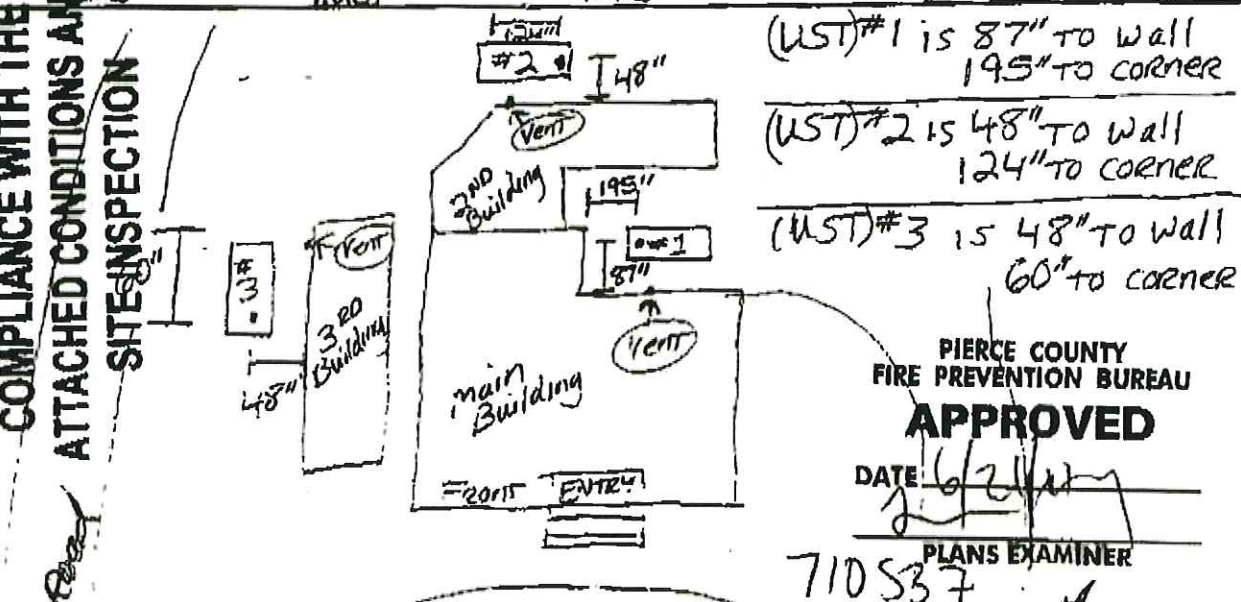 COMPLIANCE WITH THE
ATTACHED CONDITIONS AN
SITE INSPECTION
124"
#2
48"
Vent
2ND
Building
195"
#1
87"
Vent
#
3
Vent
3RD
Building
48"
main
Building
Front
ENTRY
Road
(UST)#1 is 87" TO Wall
195" TO CORNER
(UST)#2 is 48" TO Wall
124" TO CORNER
(UST)#3 is 48" TO Wall
60" TO CORNER
PIERCE COUNTY
FIRE PREVENTION BUREAU
APPROVED
DATE
PLANS EXAMINER
710537